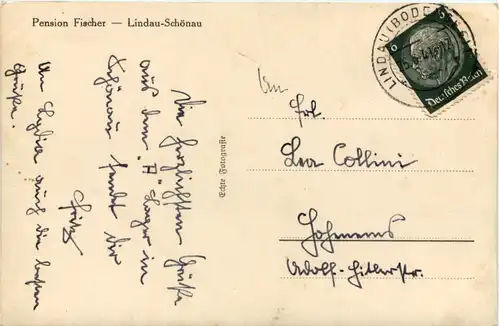 Pension Fischer — Lindau-Schönau
Die herzlichsten Grüße
aus dem "A" Lager in
Schönau sendet dir
Fritz
An Lydia auch die besten
Grüße.
Echte Fotografie
LINDAU (BODENSEE)
6
Deutsches Reich
An
Frl.
Lea Collini
Hohenems
Adolf-Hitlerstr.